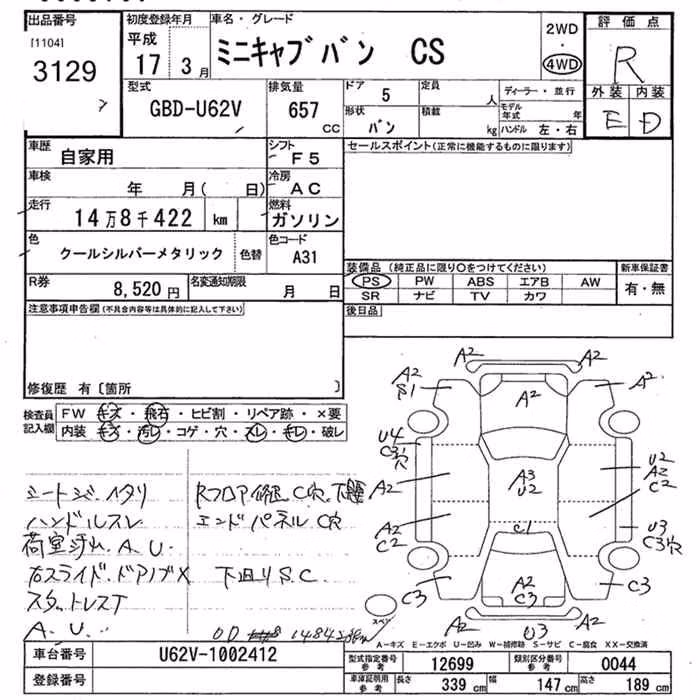 出品番号
[1104]
3129
初度登録年月
平成
17 3月
車名・グレード
ミニキャブバン CS
2WD
・
4WD
評価点
R
外装 内装
E D
型式
GBD-U62V
排気量
657 CC
ドア 5
定員 人
形状 バン
積載 kg
ディーラー・並行
モデル年式 年
ハンドル 左・右
車歴 自家用
シフト F5
車検 年 月( 日)
冷房 AC
走行 14万8千422 km
燃料 ガソリン
色 クールシルバーメタリック 色替
色コード A31
R券 8,520円
名変通知期限 月 日
セールスポイント(正常に機能するものに限ります)
装備品 (純正品に限り○をつけてください)
PS PW ABS エアB AW
SR ナビ TV カワ
新車保証書
有・無
後日品
注意事項申告欄(不具合内容等は具体的に記入して下さい)
修復歴 有〔箇所 〕
検査員記入欄
FW キズ・飛石・ヒビ割・リペア跡・×要
内装 キズ・汚レ・コゲ・穴・スレ・キレ・破レ
シートジミ、ヘタリ
ハンドルスレ
荷室汚れ、A、U
右スライド、ドアノブX
A、U
Rフロア修正、C穴、
エンドパネルC穴
下廻りS、C
A2 A2
A2 S1 A2 A2
U4 C3穴 U2 A2 C2
A2 A3 U2
A2 C2 C1 U3 C3穴
C3 A2 C3 C3
A2 U3 A2
スペア
A-キズ E-エクボ U-凹み W-補修跡 S-サビ C-腐食 XX-交換済
車台番号 U62V-1002412
登録番号
型式指定番号 参考 12699
類別区分番号 参考 0044
車庫証明用 参考 長さ 339cm 幅 147cm 高さ 189cm